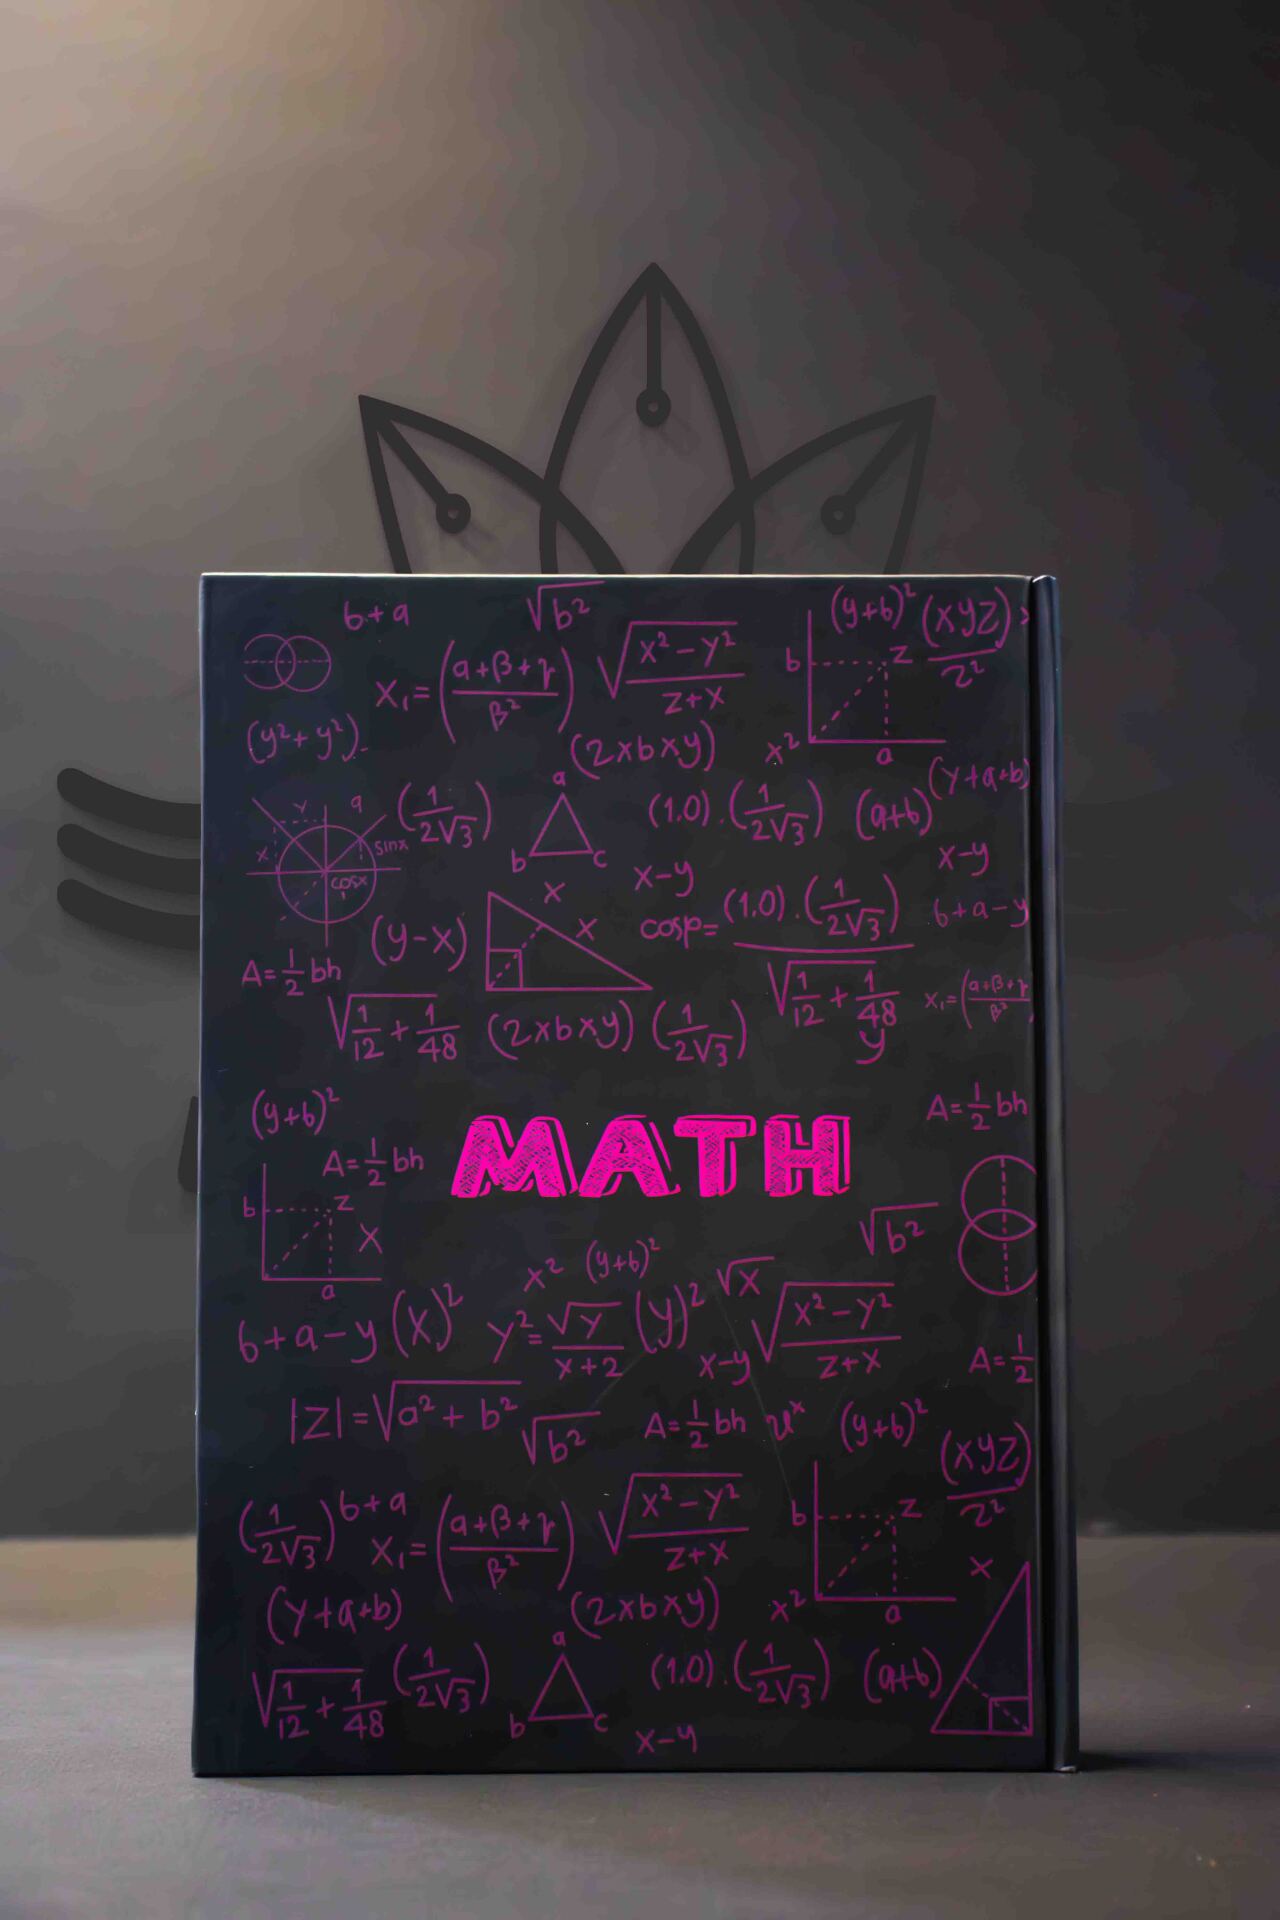 b+a √b² (y+b)² (xyz)/z²
X₁=((a+β+γ)/β²) √((x²-y²)/(z+x)) b z
(y²+y²) (2xbxy) x² a
(y+a+b)
y a (1/(2√3)) a (1,0).(1/(2√3)) (a+b)
x sinx cosx b c x-y x-y
(y-x) x x cosp=((1,0).(1/(2√3)))/√(1/12+1/48) b+a-y
A=1/2 bh
√(1/12+1/48) (2xbxy) (1/(2√3)) y X₁=((a+β+γ)/β²)
(y+b)² A=1/2 bh
A=1/2 bh MATH
b z x √b²
a x² (y+b)² √x
b+a-y (x)² y²=√y/(x+2) (y)² x-y √((x²-y²)/(z+x)) A=1/2
|z|=√(a²+b²) √b² A=1/2 bh (y+b)² (xyz)/z²
(1/(2√3)) b+a X₁=((a+β+γ)/β²) √((x²-y²)/(z+x)) b z
x
(y+a+b) (2xbxy) x² a
√(1/12+1/48) (1/(2√3)) a (1,0).(1/(2√3)) (a+b)
b c x-y